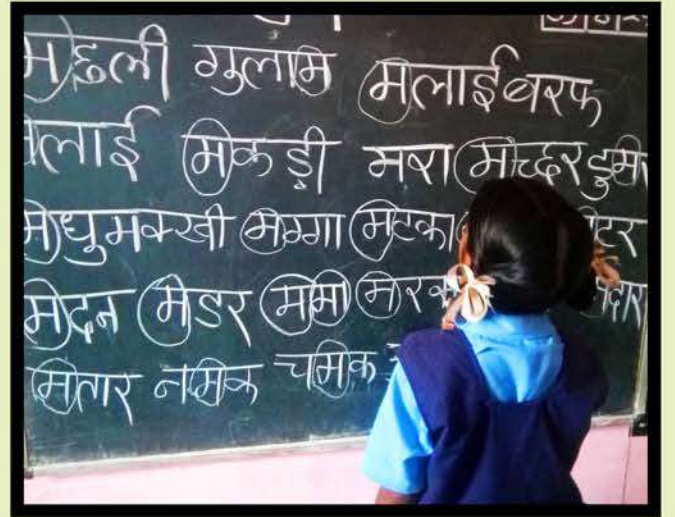 मछली गुलाम मलाईबरफ
मलाई मकड़ी मषा मच्छर डुम
मधुमक्खी मग्गा मटका टर
मदन मडर मामा मर दार
मतार नमक चमक